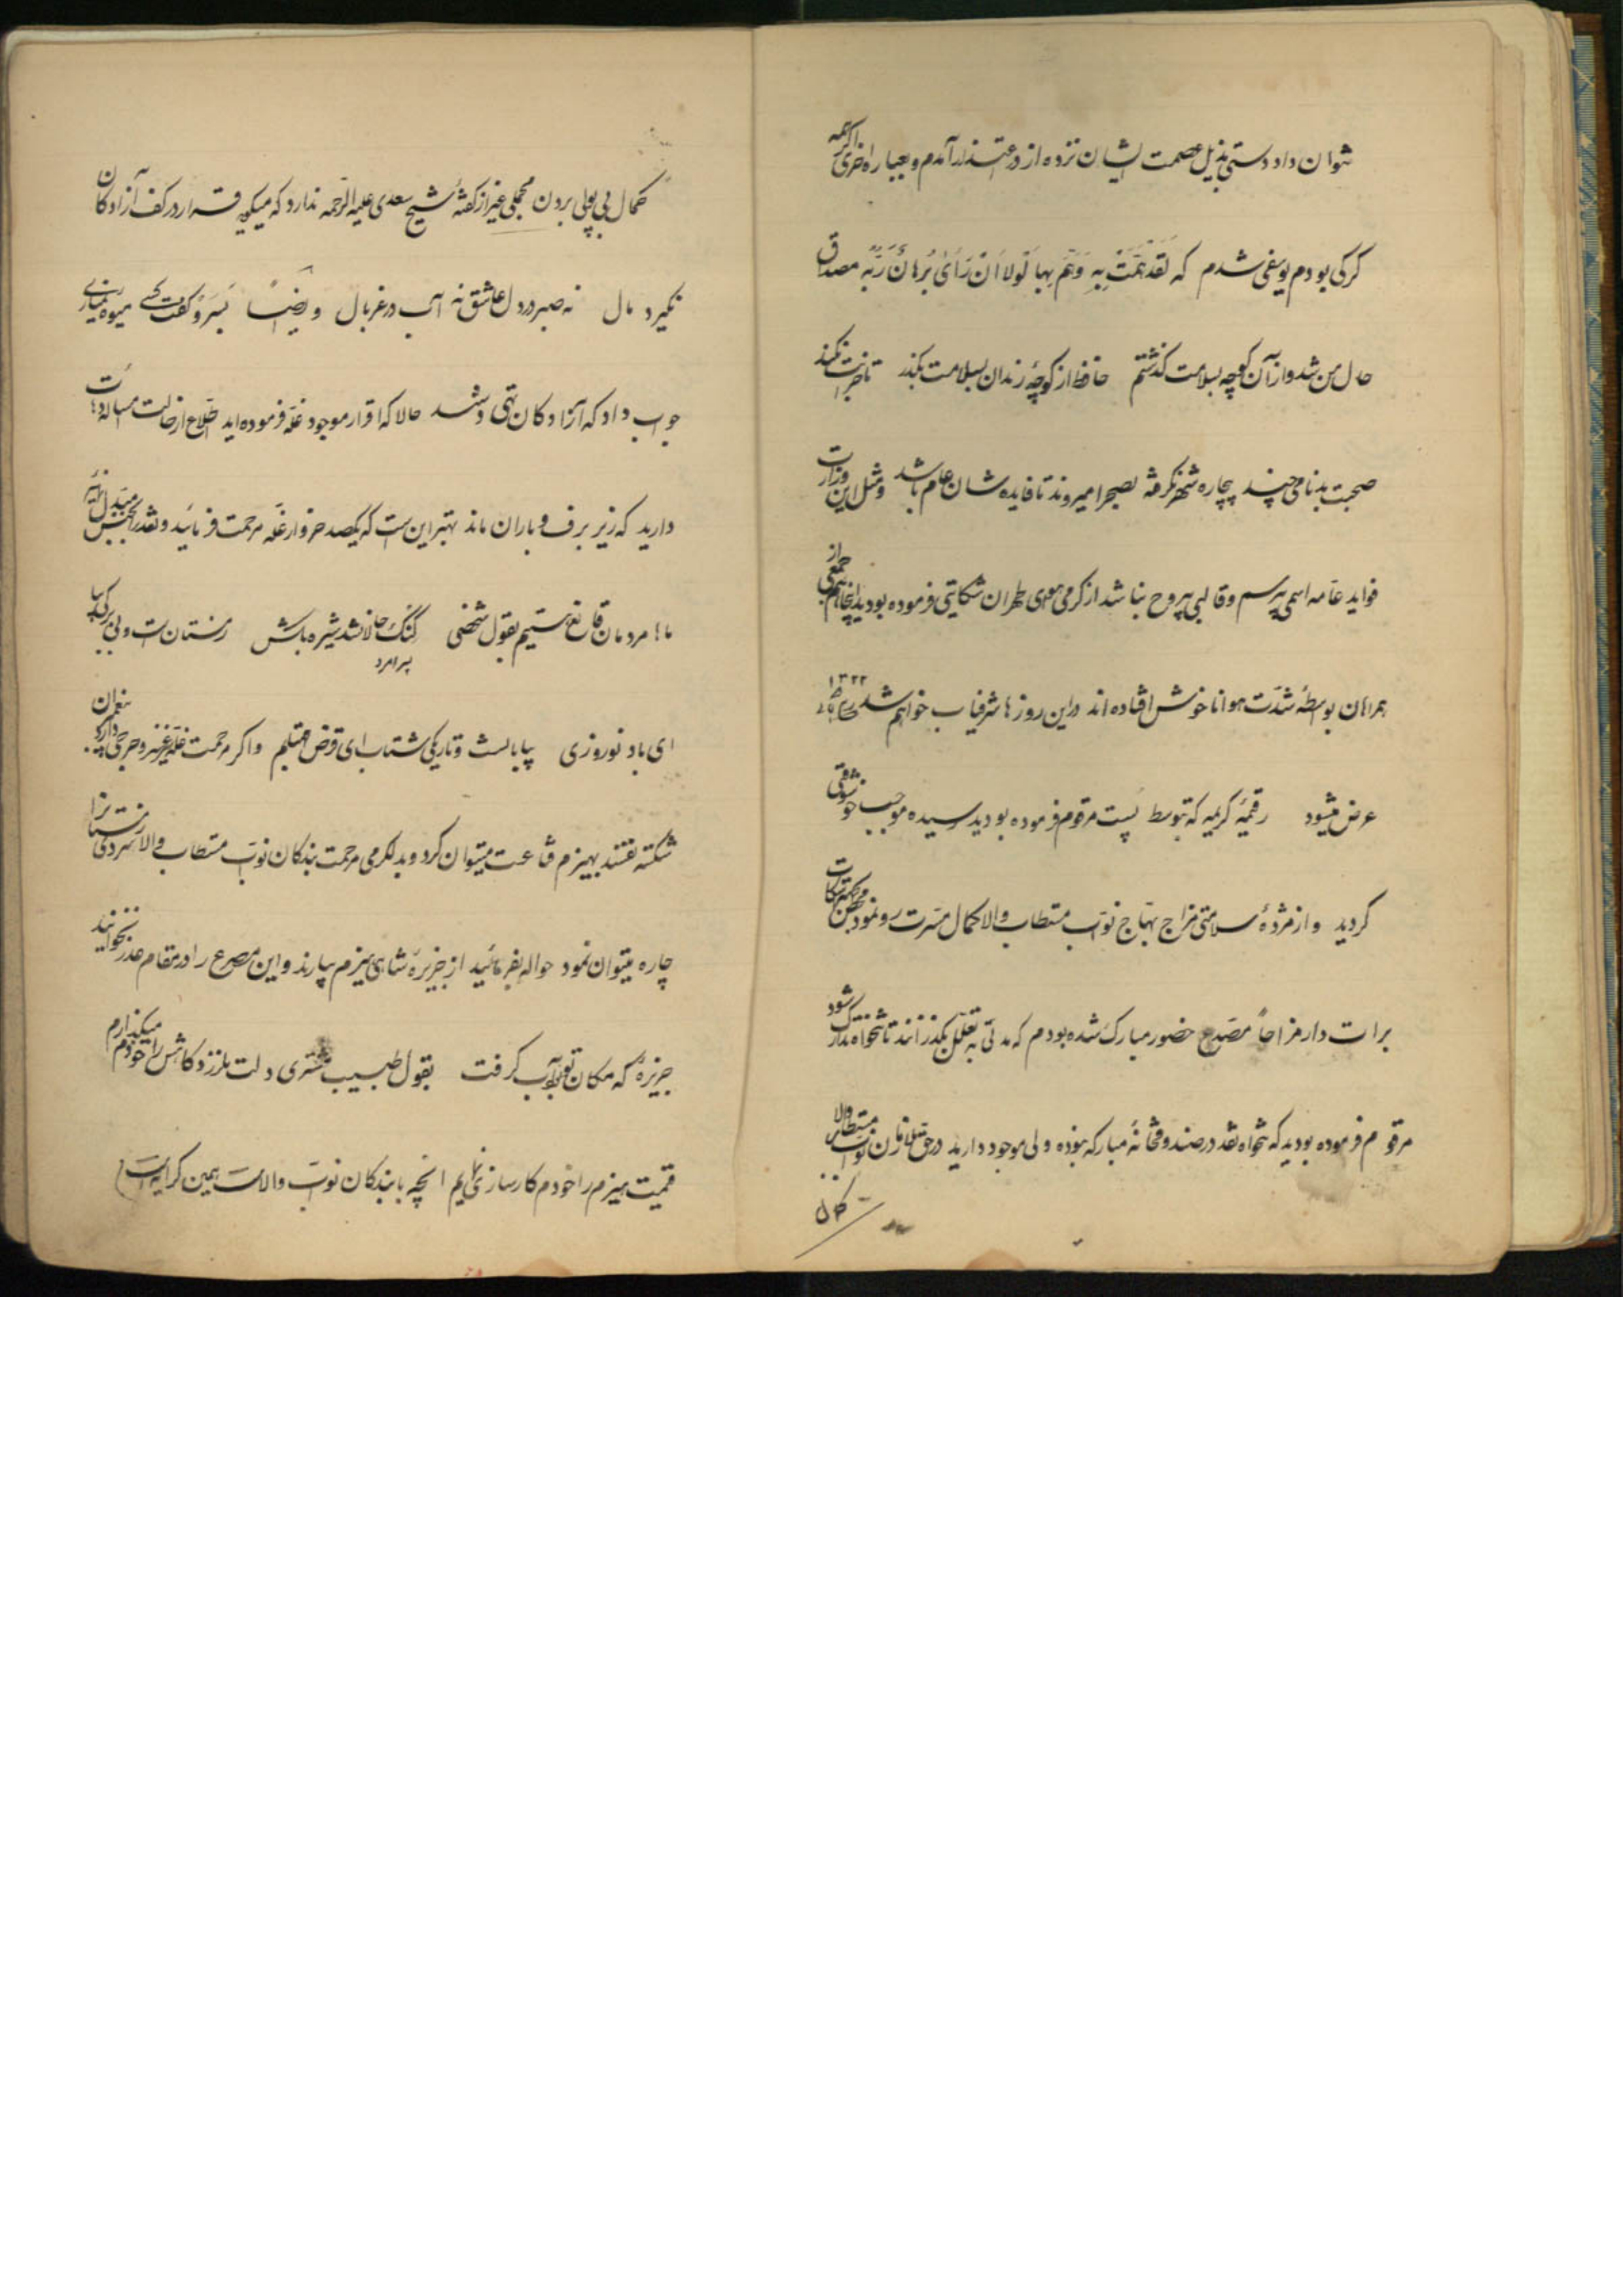 نتوان داد دستی بذیل عصمت ایشان نزده از در اعتذار آمدم و بعبارة اخری اگرچه
کرکی بودم یوسفی شدم که لَقَد هَمَّت بِهِ وَهَمَّ بِها لَولا اَن رَأی بُرهانَ رَبِّه مصداق
حال من شد و از آن کوچه بسلامت کذشتم حافظ از کوچهٔ رندان بسلامت بکذر تا خرابت نکند
صحبت بدنامی چند بیچاره شحنه نکرفته بصحرا میروند تا فایده شان عام باشد و مثل این وزارت
فواید عامه اسمی بی رسم و قالبی بیروح نباشد از کرمی هوای طهران شکایتی فرموده بودید اینجا هم جمعی از
همراهان بواسطهٔ شدّت هوا ناخوش افتاده اند در این روزها شرفیاب خواهم شد ۱۳۲۲
عرض میشود رقیمهٔ کریمه که بتوسط پست مرقوم فرموده بودید رسیده موجب خوشوقتی
کردید و از مژدهٔ سلامتی مزاج بهّاج نوّاب مستطاب والا کمال مسرت رو نمود
برات دار مزاحاً مصدع حضور مبارک شده بودم که مدتی به تعلّل بکذرانند تا تنخواه تدارک شود
مرقوم فرموده بودید که تنخواه نقد در صندوقخانهٔ مبارکه نبوده ولی موجود دارید در حق ملازمان نوّاب مستطاب والا
کمال
کمال بی پولی بردن محملی غیر از کفتهٔ شیخ سعدی علیه الرّحمه ندارد که میکوید قرار در کف آزادکان
نکیرد مال نه صبر در دل عاشق نه آب در غربال و ایضاً بسرو کفت کسی میوهٔ نمیاری
جواب داد که آزادکان تهی دستند حالا که اقرار موجود غلّه فرموده اید اطّلاع از حالت مساله
دارید که زیر برف و باران ماند بهتر این است که یکصد خروار غلّه مرحمت فرمائید و نقد را بجنس مبدّل
ما مردمان قانع هستیم بقول شخصی کنک خانلر نشد شیره باش زمستان است و بی برکی بیا
ای باد نوروزی بیابانست و تاریکی شتاب ای قرص مهتابم و اکر مرحمت غلّه
شکسته نفتند بهیزم قناعت میتوان کرد و بدلکرمی مرحمت بندکان نوّاب مستطاب والا سردی زمستانرا
چاره میتوان نمود حواله بفرمائید از جزیرهٔ شاهی هیزم بیارند و این مصرع را در مقام عذر نخوانید
جزیرهٔ که مکان تو بود آب کرفت بقول طبیب شوشتری دلت نلرزد کامش را خودم میکذارم
قیمت هیزم را خودم کارسازی نمایم آنچه با بندکان نوّاب والاست همین کرایه است